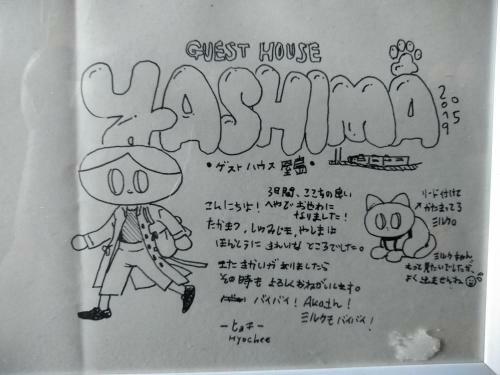 GUEST HOUSE
YASHIMA
2019
05
・ゲストハウス 屋島・
3日間、ここちの良い
こんにちは! へやでおせわに
なりました!
やしまは
ほんとうに きれいな ところでした。
またきかいがありましたら
その時も よろしくおねがいします。
バイバイ! Akaさん!
ミルクもバイバイ!
-ヒョチ-
Hyochee
リード付けて
かたまってる
ミルク
ミルクちゃん、
もって見たいでしたが、